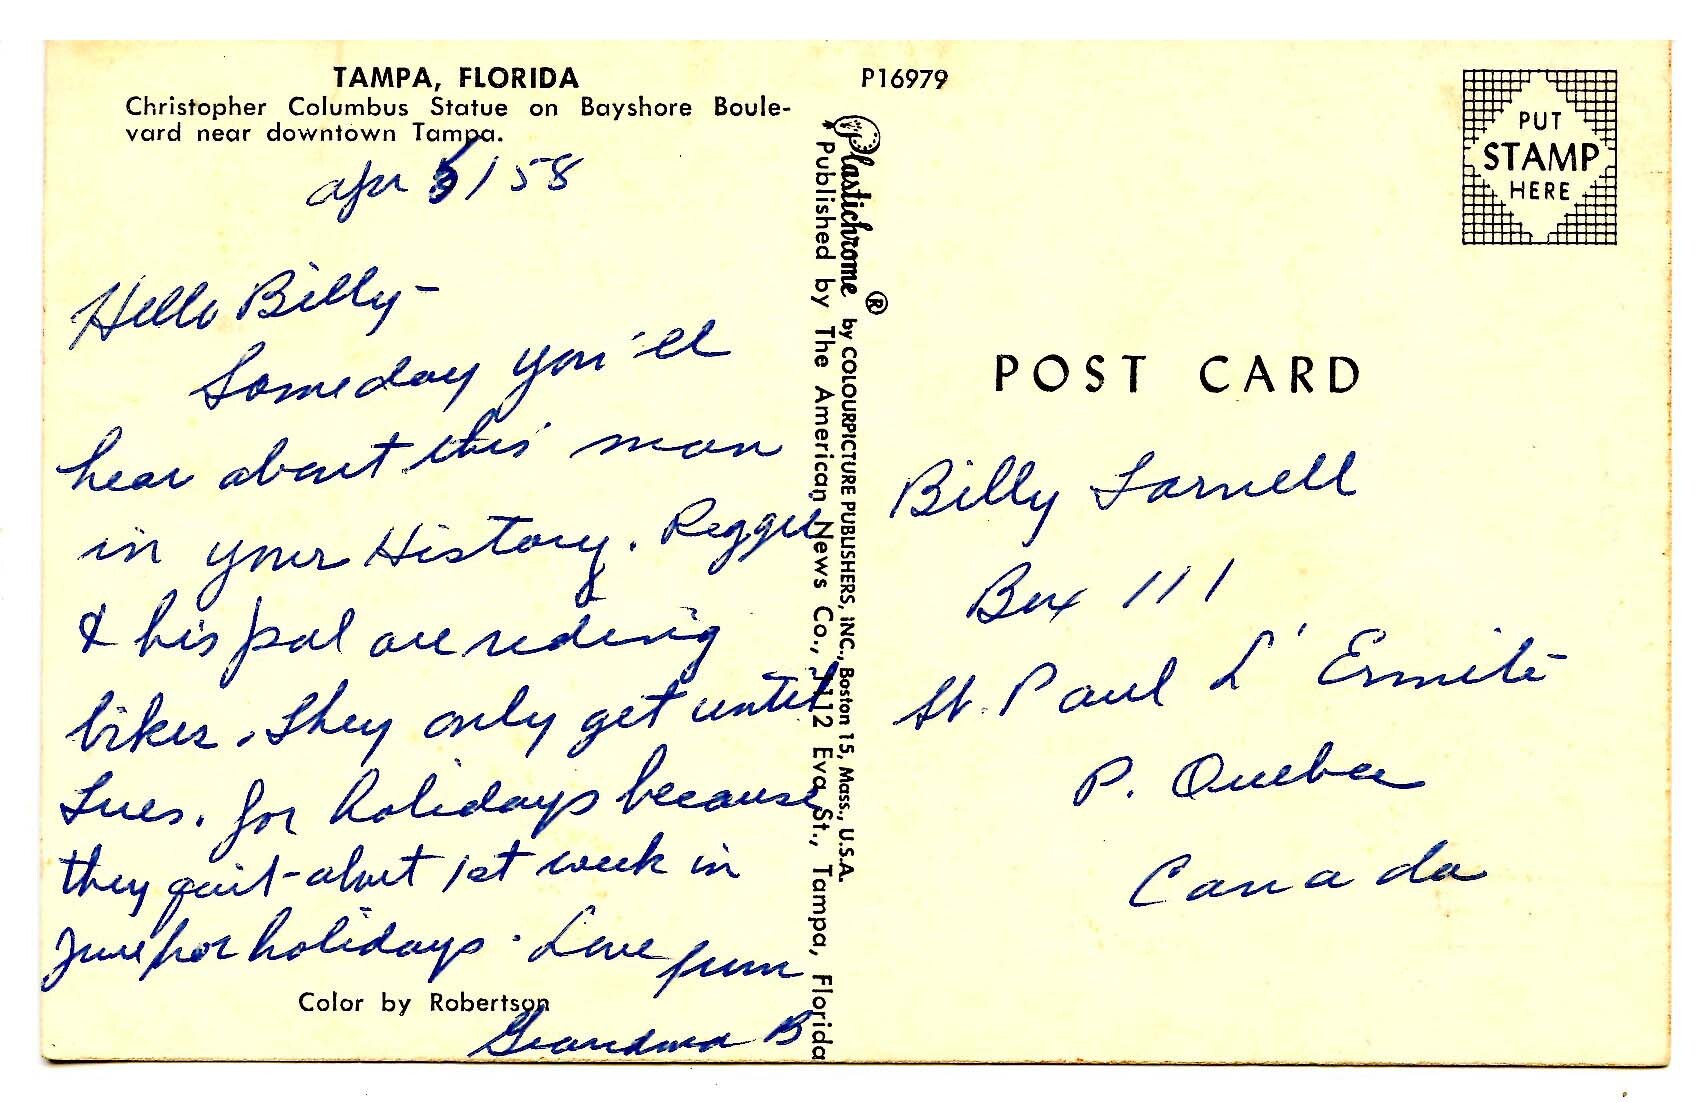 TAMPA, FLORIDA
Christopher Columbus Statue on Bayshore Boule-
vard near downtown Tampa.
apr 5/58
Hello Billy-
Someday you'll
hear about this man
in your History. Reggie
& his pal are riding
bikes. They only get until
Tues. for holidays because
they quit-about 1st week in
June for holidays. Love from
Grandma B
Color by Robertson
P16979
Plastichrome ® by COLOURPICTURE PUBLISHERS, INC., Boston 15, Mass., U.S.A.
Published by The American News Co., 1112 Eva St., Tampa, Florida
PUT
STAMP
HERE
POST CARD
Billy Larnell
Box 111
St. Paul L'Ermite
P. Quebec
Canada